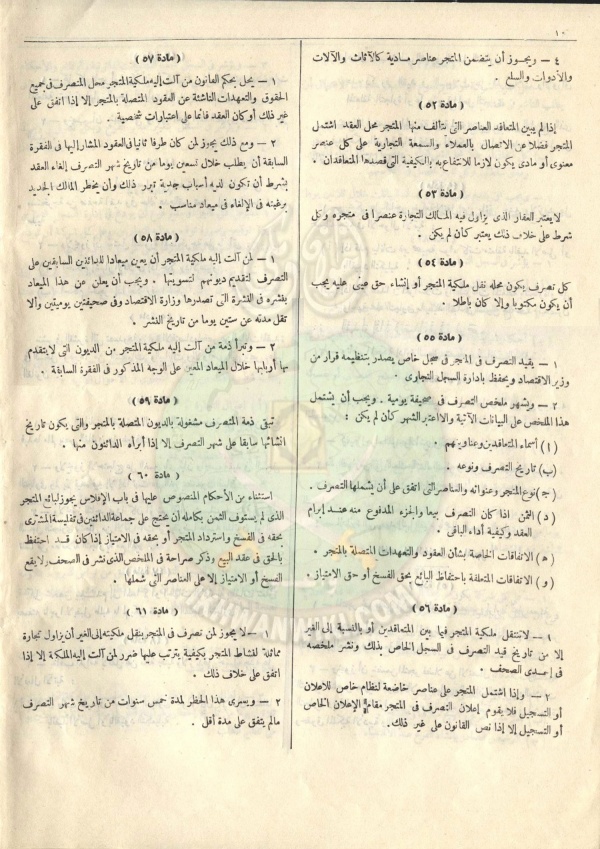 ١٠
٤ - ويجوز أن يتضمن المتجر عناصر مادية كالأثاث والآلات
والأدوات والسلع .
( مادة ٥٢ )
إذا لم يبين المتعاقد العناصر التى يتألف منها المتجر محل العقد اشتمل
المتجر فضلا عن الاتصال بالعملاء والسمعة التجارية على كل عنصر
معنوى أو مادى يكون لازما للانتفاع به بالكيفية التى قصدها المتعاقدان .
( مادة ٥٣ )
لا يعتبر العقار الذى يزاول فيه المالك التجارة عنصرا فى متجره وكل
شرط على خلاف ذلك يعتبر كأن لم يكن .
( مادة ٥٤ )
كل تصرف يكون محله نقل ملكية المتجر أو إنشاء حق عينى عليه يجب
أن يكون مكتوبا وإلا كان باطلا .
( مادة ٥٥ )
١ - يقيد التصرف فى المتجر فى سجل خاص يصدر بتنظيمه قرار من
وزير الاقتصاد ويحفظ بادارة السجل التجارى .
٢ - ويشهر ملخص التصرف فى صحيفة يومية . ويجب أن يشتمل
هذا الملخص على البيانات الآتية والا اعتبر الشهر كأن لم يكن :
( ا ) أسماء المتعاقدين وعناوينهم .
(ب) تاريخ التصرف ونوعه .
(ج) نوع المتجر وعنوانه والعناصر التى اتفق على أن يشملها التصرف .
( د ) الثمن اذا كان التصرف بيعا والجزء المدفوع منه عند إبرام
العقد وكيفية أداء الباقى .
( ه ) الاتفاقات الخاصة بشأن العقود والتعهدات المتصلة بالمتجر .
( و ) الاتفاقات المتعلقة باحتفاظ البائع بحق الفسخ أو حق الامتياز .
( مادة ٥٦ )
١ - لا تنتقل ملكية المتجر فيما بين المتعاقدين أو بالنسبة إلى الغير
إلا من تاريخ قيد التصرف فى السجل الخاص بذلك ونشر ملخصه
فى إحدى الصحف .
٢ - وإذا اشتمل المتجر على عناصر خاضعة لنظام خاص للاعلان
أو التسجيل فلا يقوم إعلان التصرف فى المتجر مقام الإعلان الخاص
أو التسجيل إلا إذا نص القانون على غير ذلك .
( مادة ٥٧ )
١ - يحل بحكم القانون من آلت إليه ملكية المتجر محل المتصرف فى جميع
الحقوق والتعهدات الناشئة عن العقود المتصلة بالمتجر إلا إذا اتفق على
غير ذلك أو كان العقد قائما على اعتبارات شخصية .
٢ - ومع ذلك يجوز لمن كان طرفا ثانيا فى العقود المشار اليها فى الفقرة
السابقة أن يطلب خلال تسعين يوما من تاريخ شهر التصرف إلغاء العقد
بشرط أن تكون لديه أسباب جدية تبرر ذلك وأن يخطر المالك الجديد
برغبته فى الإلغاء فى ميعاد مناسب .
( مادة ٥٨ )
١ - لمن آلت إليه ملكية المتجر أن يعين ميعادا للدائنين السابقين على
التصرف لتقديم ديونهم لتسويتها . ويجب أن يعلن عن هذا الميعاد
بنشره فى النشرة التى تصدرها وزارة الاقتصاد وفى صحيفتين يوميتين وألا
تقل مدته عن ستين يوما من تاريخ النشر .
٢ - وتبرأ ذمة من آلت إليه ملكية المتجر من الديون التى لا يتقدم
بها أربابها خلال الميعاد المعين على الوجه المذكور فى الفقرة السابقة .
( مادة ٥٩ )
تبقى ذمة المتصرف مشغولة بالديون المتصلة بالمتجر والتى يكون تاريخ
انشائها سابقا على شهر التصرف إلا إذا أبرأه الدائنون منها .
( مادة ٦٠ )
استثناء من الأحكام المنصوص عليها فى باب الإفلاس يجوز لبائع المتجر
الذى لم يستوف الثمن بكامله أن يحتج على جماعة الدائنين فى تفليسة المشترى
بحقه فى الفسخ واسترداد المتجر أو بحقه فى الامتياز إذا كان قد احتفظ
بالحق فى عقد البيع وذكر صراحة فى الملخص الذى نشر فى الصحف ولا يقع
الفسخ أو الامتياز إلا على العناصر التى شملها .
( مادة ٦١ )
١ - لا يجوز لمن تصرف فى المتجر بنقل ملكيته إلى الغير أن يزاول تجارة
مماثلة لنشاط المتجر بكيفية يترتب عليها ضرر لمن آلت إليه الملكية إلا إذا
اتفق على خلاف ذلك .
٢ - ويسرى هذا الحظر لمدة خمس سنوات من تاريخ شهر التصرف
مالم يتفق على مدة أقل .